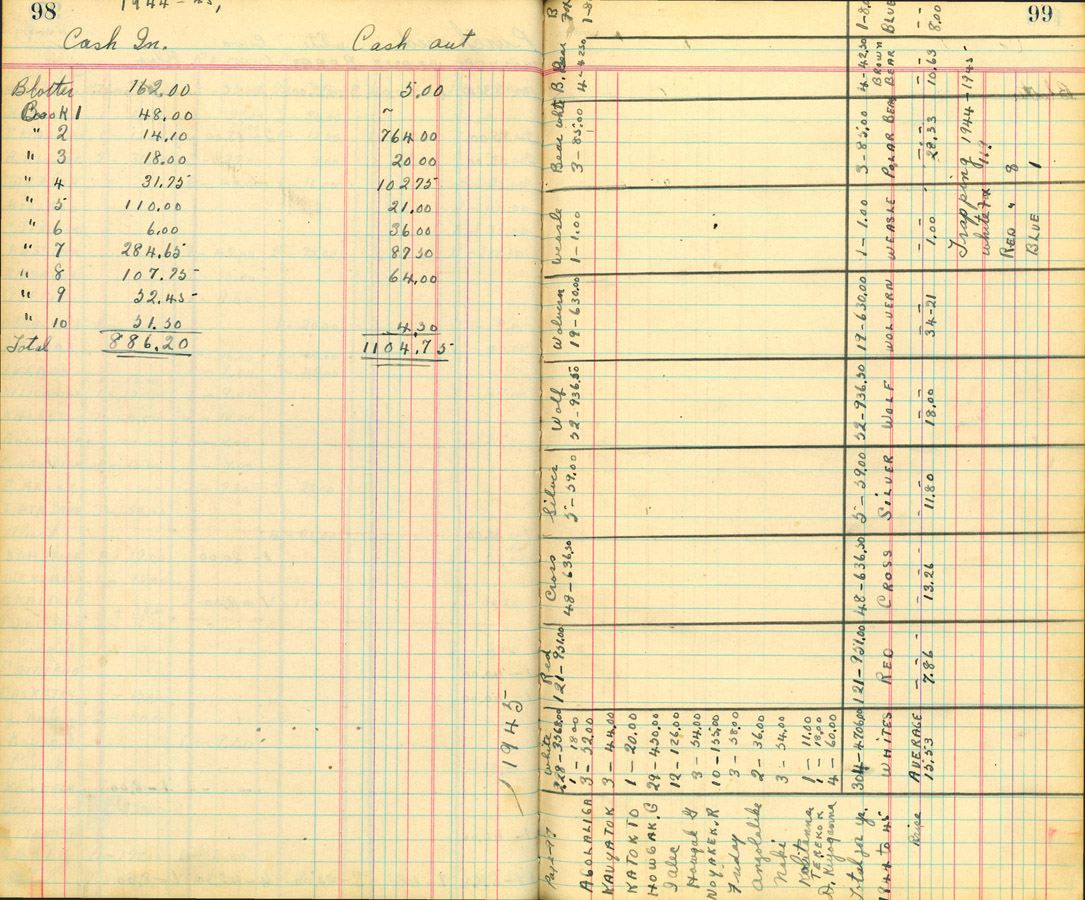 98
1944-45,
Cash In. Cash out
Blotter 162.00 5.00
Book 1 48.00 ~
" 2 14.10 764.00
" 3 18.00 20 00
" 4 31.75 102 75
" 5 110.00 21.00
" 6 6.00 36 00
" 7 284.65 87 50
" 8 107.75 64.00
" 9 52.45
" 10 51.50 4.50
Total 886.20 1104.75
1945
99
White Red Cross Silver Wolf Wolvern Weasle Bear white B. Bear
228-3568.00 121-951.00 48-636.50 5-59.00 52-936.50 19-630.00 1-1.00 3-85.00 4-42.50
1-18.00
AGOLALIGA 3-52.00
KAUYATOK 3-44.00
KATOKTO 1-20.00
HOWGAK.G 29-450.00
12-126.00
Howgak 3-54.00
NOYAKEK.R 10-155.00
Friday 3-58.00
Angolalike 2-36.00
Niki 3-54.00
1-11.00
TEREKOK 1-18.00
4-60.00
Total for yr. 304-4706.00 121-951.00 48-636.50 5-59.00 52-936.50 19-630.00 1-1.00 3-85.00 4-42.50 1-8.00
1944 to 45 WHITES RED CROSS SILVER WOLF WOLVERN WEASLE POLAR BEAR BROWN BEAR BLUE
AVERAGE
Price 15.53 7.86 13.26 11.80 18.00 34-21 1.00 28.33 10.63 8.00
Trapping 1944-1945
white
RED " 8
BLUE 1